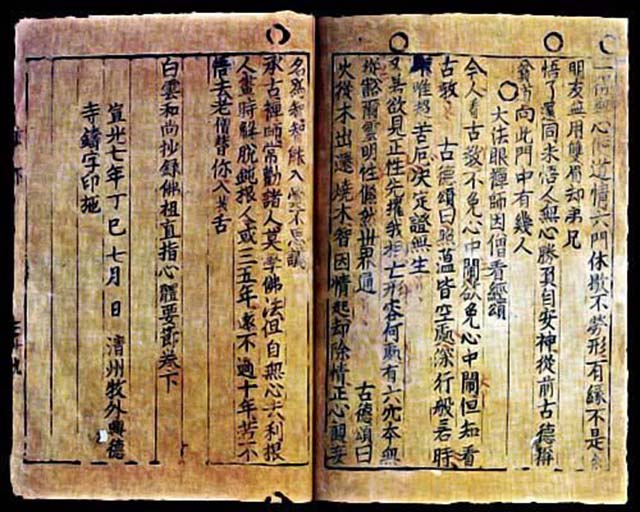 一得無心便道情六門休歇不勞形有緣不是
朋友無用雙眉却弟兄
悟了還同未悟人無心勝負自安神從前古德稱
向此門中有幾人
大法眼禪師因僧看經頌
今人看古教不免心中鬧欲免心中鬧但知看
古教 古德頌曰照蘊皆空處深行般若時
唯超苦厄決定證無生
又若欲見正性先摧我相亡形容何處有六穴本無
豁爾雲明性儼然世界通 古德頌曰
火從木出還燒木智因情起却除情正心觀妄
名爲 能入於不思議
承古禪師常勸諸人莫學佛法但自無心去利根
人晝時解脫鈍根人或三五年遠不過十年若不
悟去老僧替你入 舌
白雲和尙抄錄佛祖直指心體要節卷下
宣光七年丁巳七月 日 淸州牧外興德
寺鑄字印施